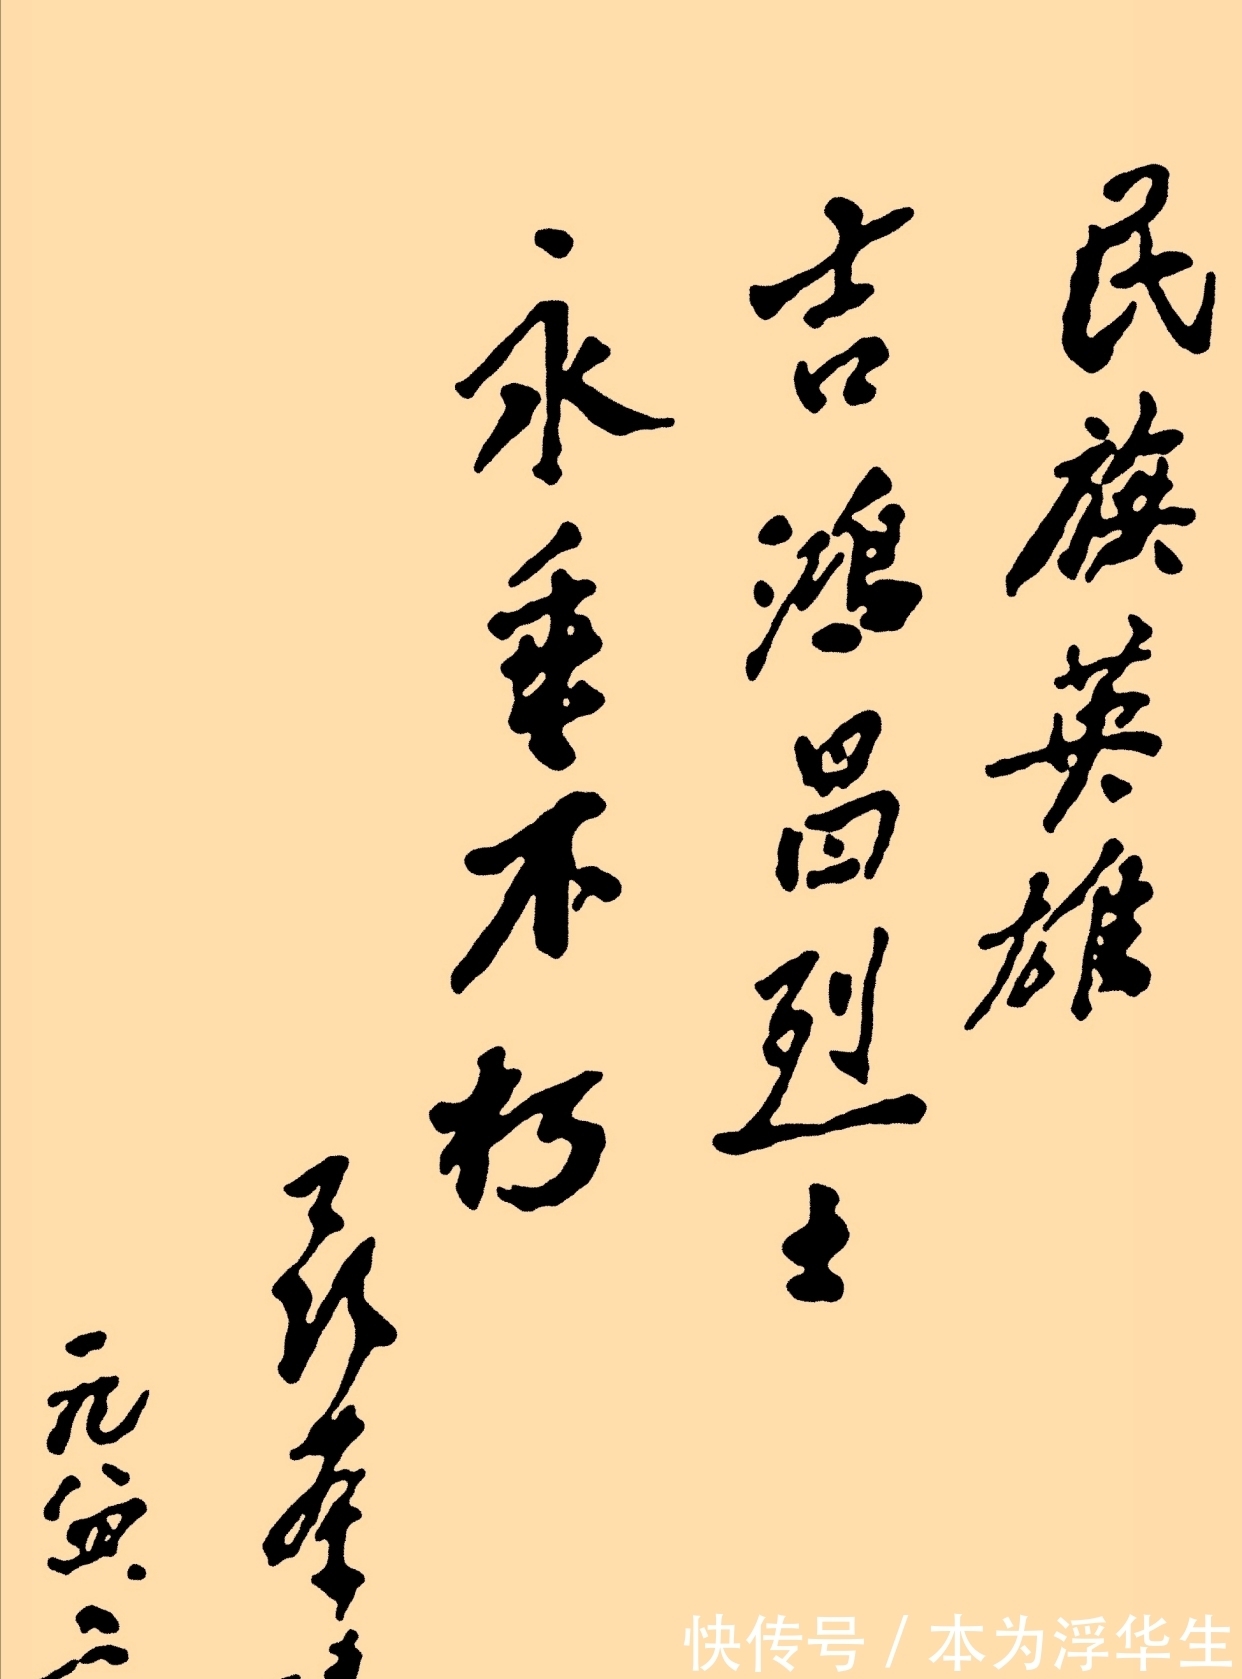 民族英雄
吉鸿昌烈士
永垂不朽
聂荣
快传号 / 本为浮华生